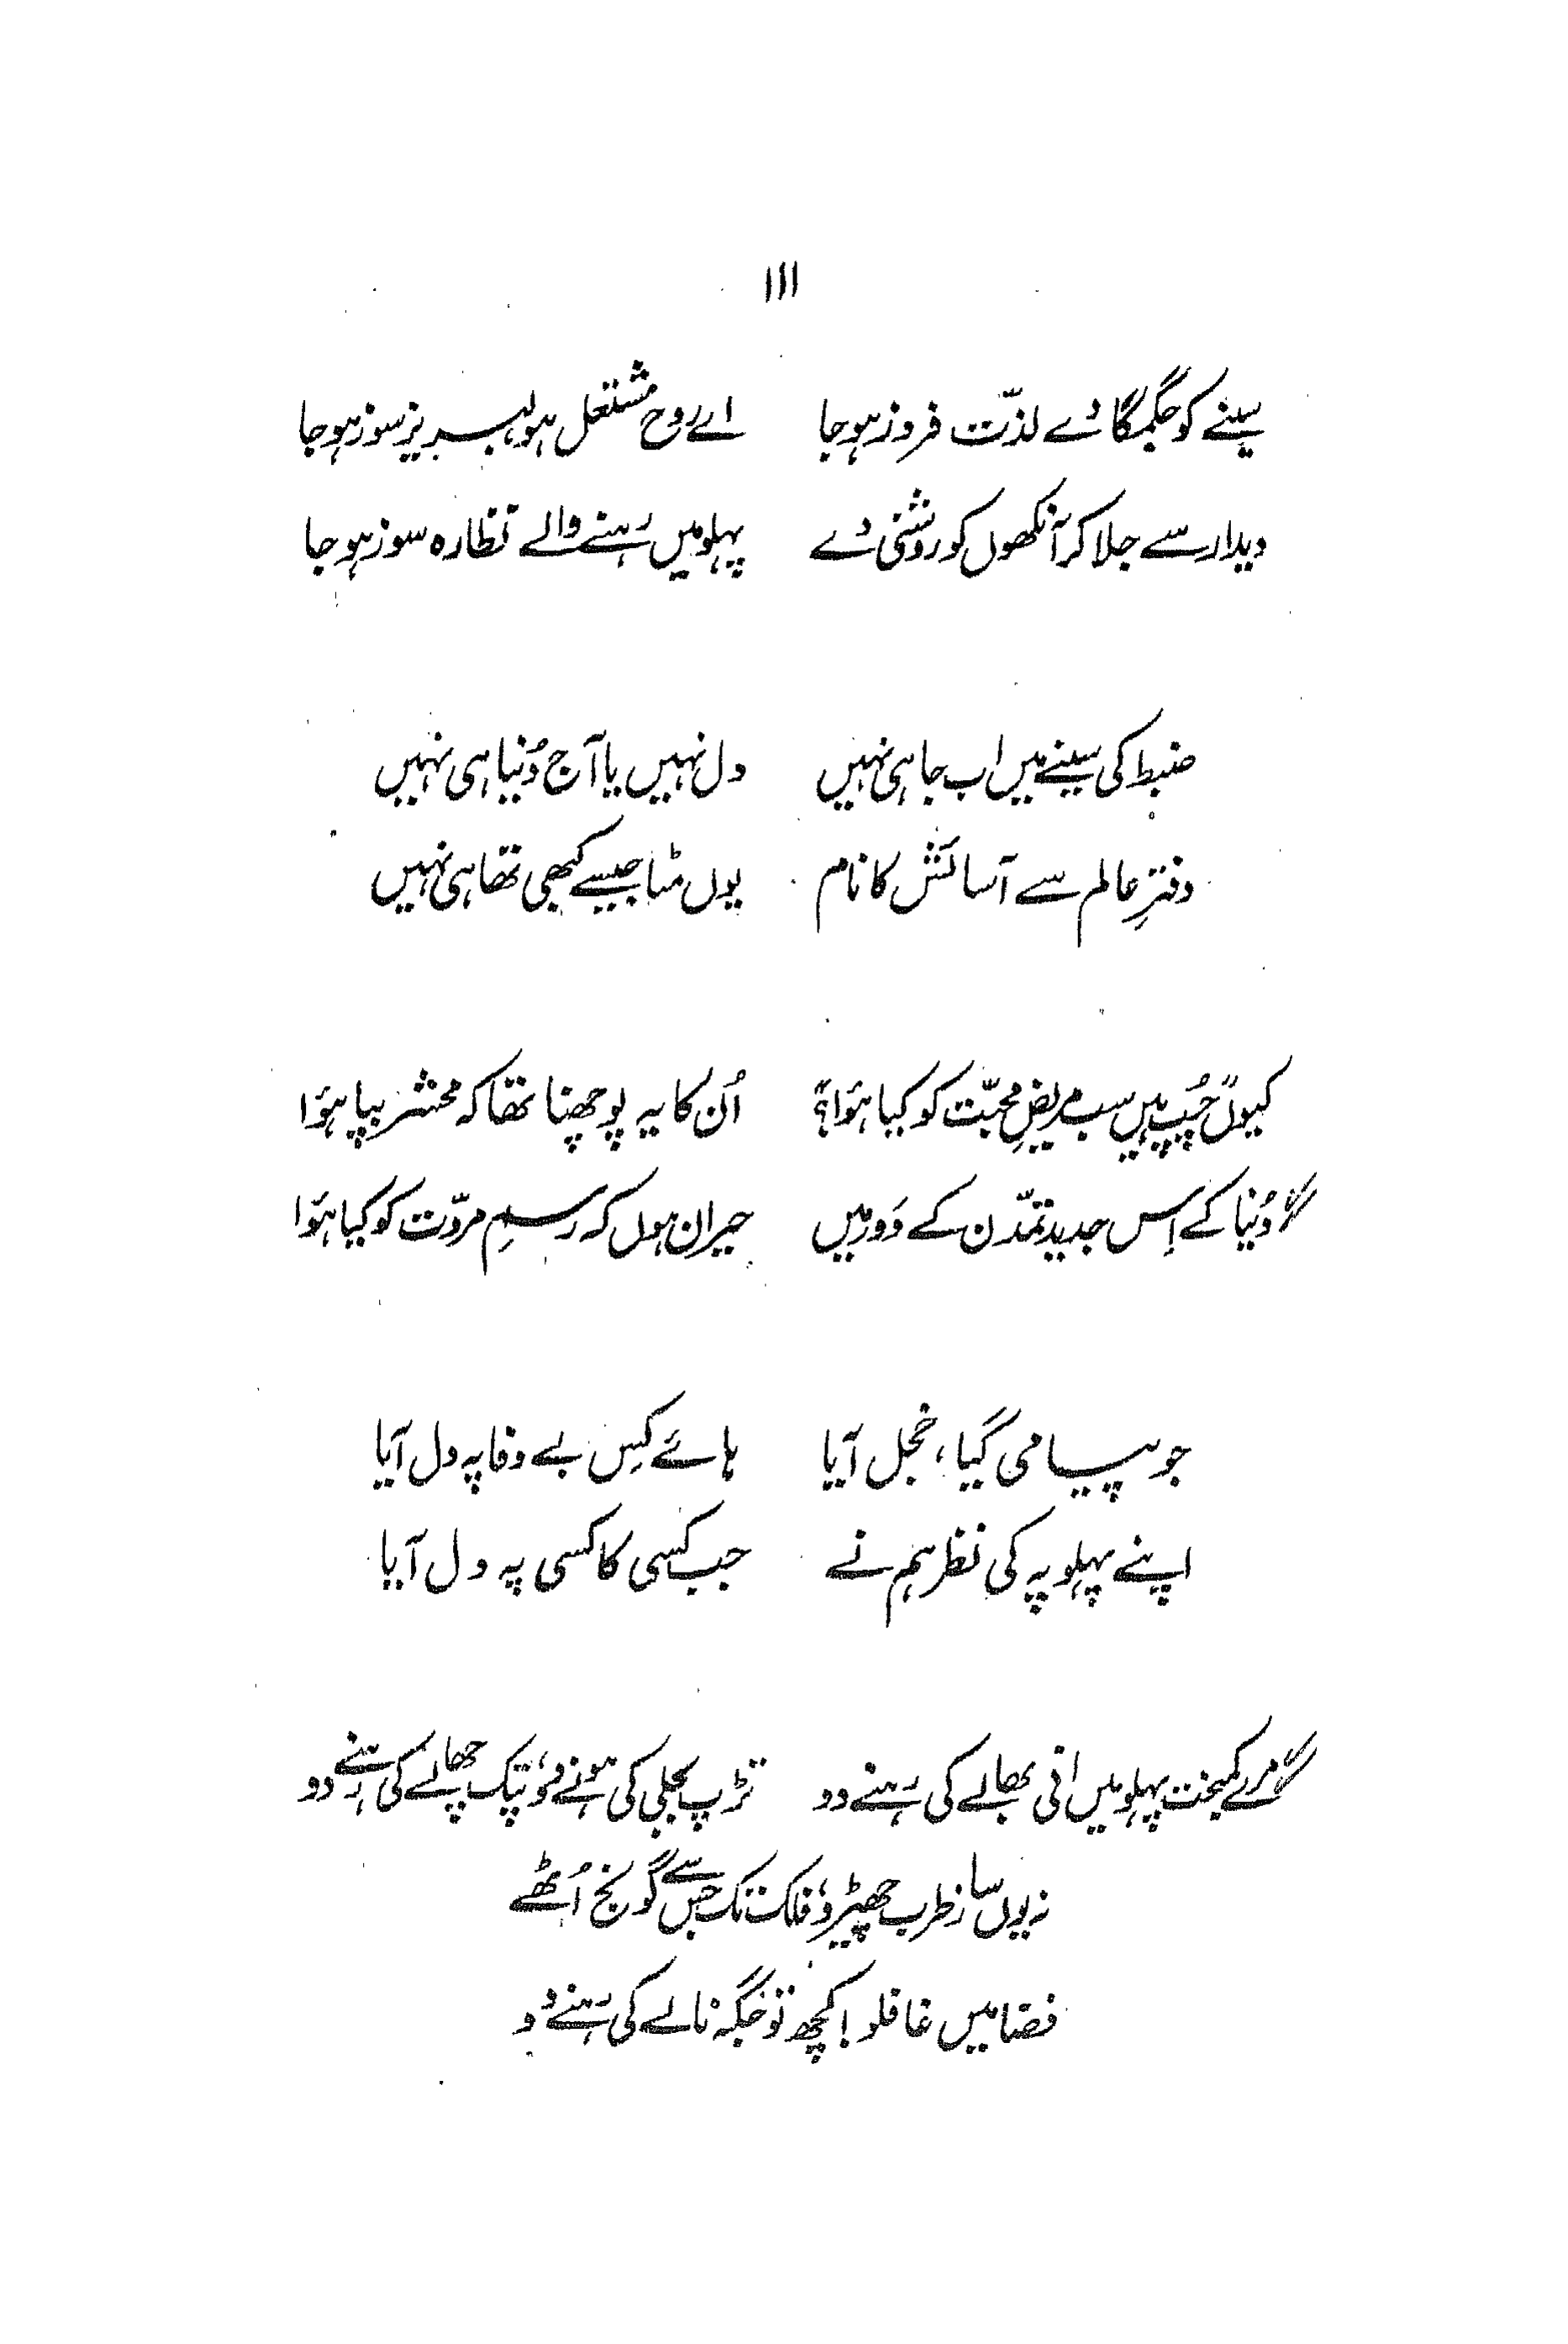 ۱۱۱
سینے کو جگمگا دے لذّت فروز ہو جا اے روح مشتعل ہو لبریز سوز ہو جا
دیدار سے جلا کر آنکھوں کو روشنی دے پہلو میں رہنے والے نظارہ سوز ہو جا
ضبط کی سینے میں اب جا ہی نہیں دل نہیں یا آج دُنیا ہی نہیں
دفترِ عالم سے آسائش کا نام یوں مٹا جیسے کبھی تھا ہی نہیں
کیوں چُپ ہیں سب مریضِ محبّت کو کیا ہؤا؟ اُن کا یہ پوچھنا تھا کہ محشر بپا ہؤا
دُنیا کے اِس جدید تمدّن کے دَور میں حیران ہوں کہ رسمِ مروّت کو کیا ہؤا
جو پیامی گیا، خجل آیا ہائے کِس بے وفا پہ دل آیا
اپنے پہلو پہ کی نظر ہم نے جب کسی کا کسی پہ دل آیا
مرے کمبخت پہلو میں انی بھالے کی رہنے دو تڑپ بجلی کی ہونے دو، ٹپک چھالے کی رہنے دو
نہ یوں سازِ طرب چھیڑو، فلک تک جس سے گونج اُٹھے
فضا میں غافلو! کچھ تو جگہ نالے کی رہنے دو